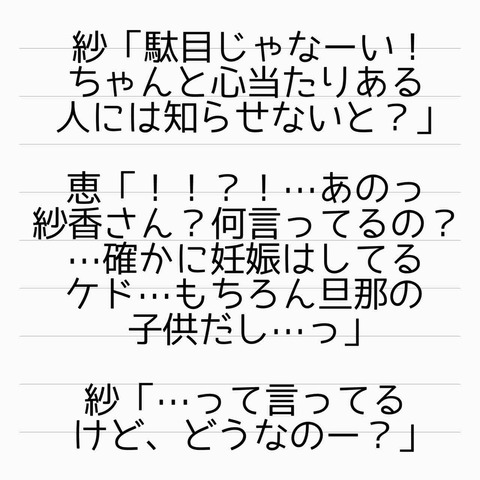 紗「駄目じゃなーい！
ちゃんと心当たりある
人には知らせないと？」
恵「！！？！…あのっ
紗香さん？何言ってるの？
…確かに妊娠はしてる
ケド…もちろん旦那の
子供だし…っ」
紗「…って言ってる
けど、どうなのー？」